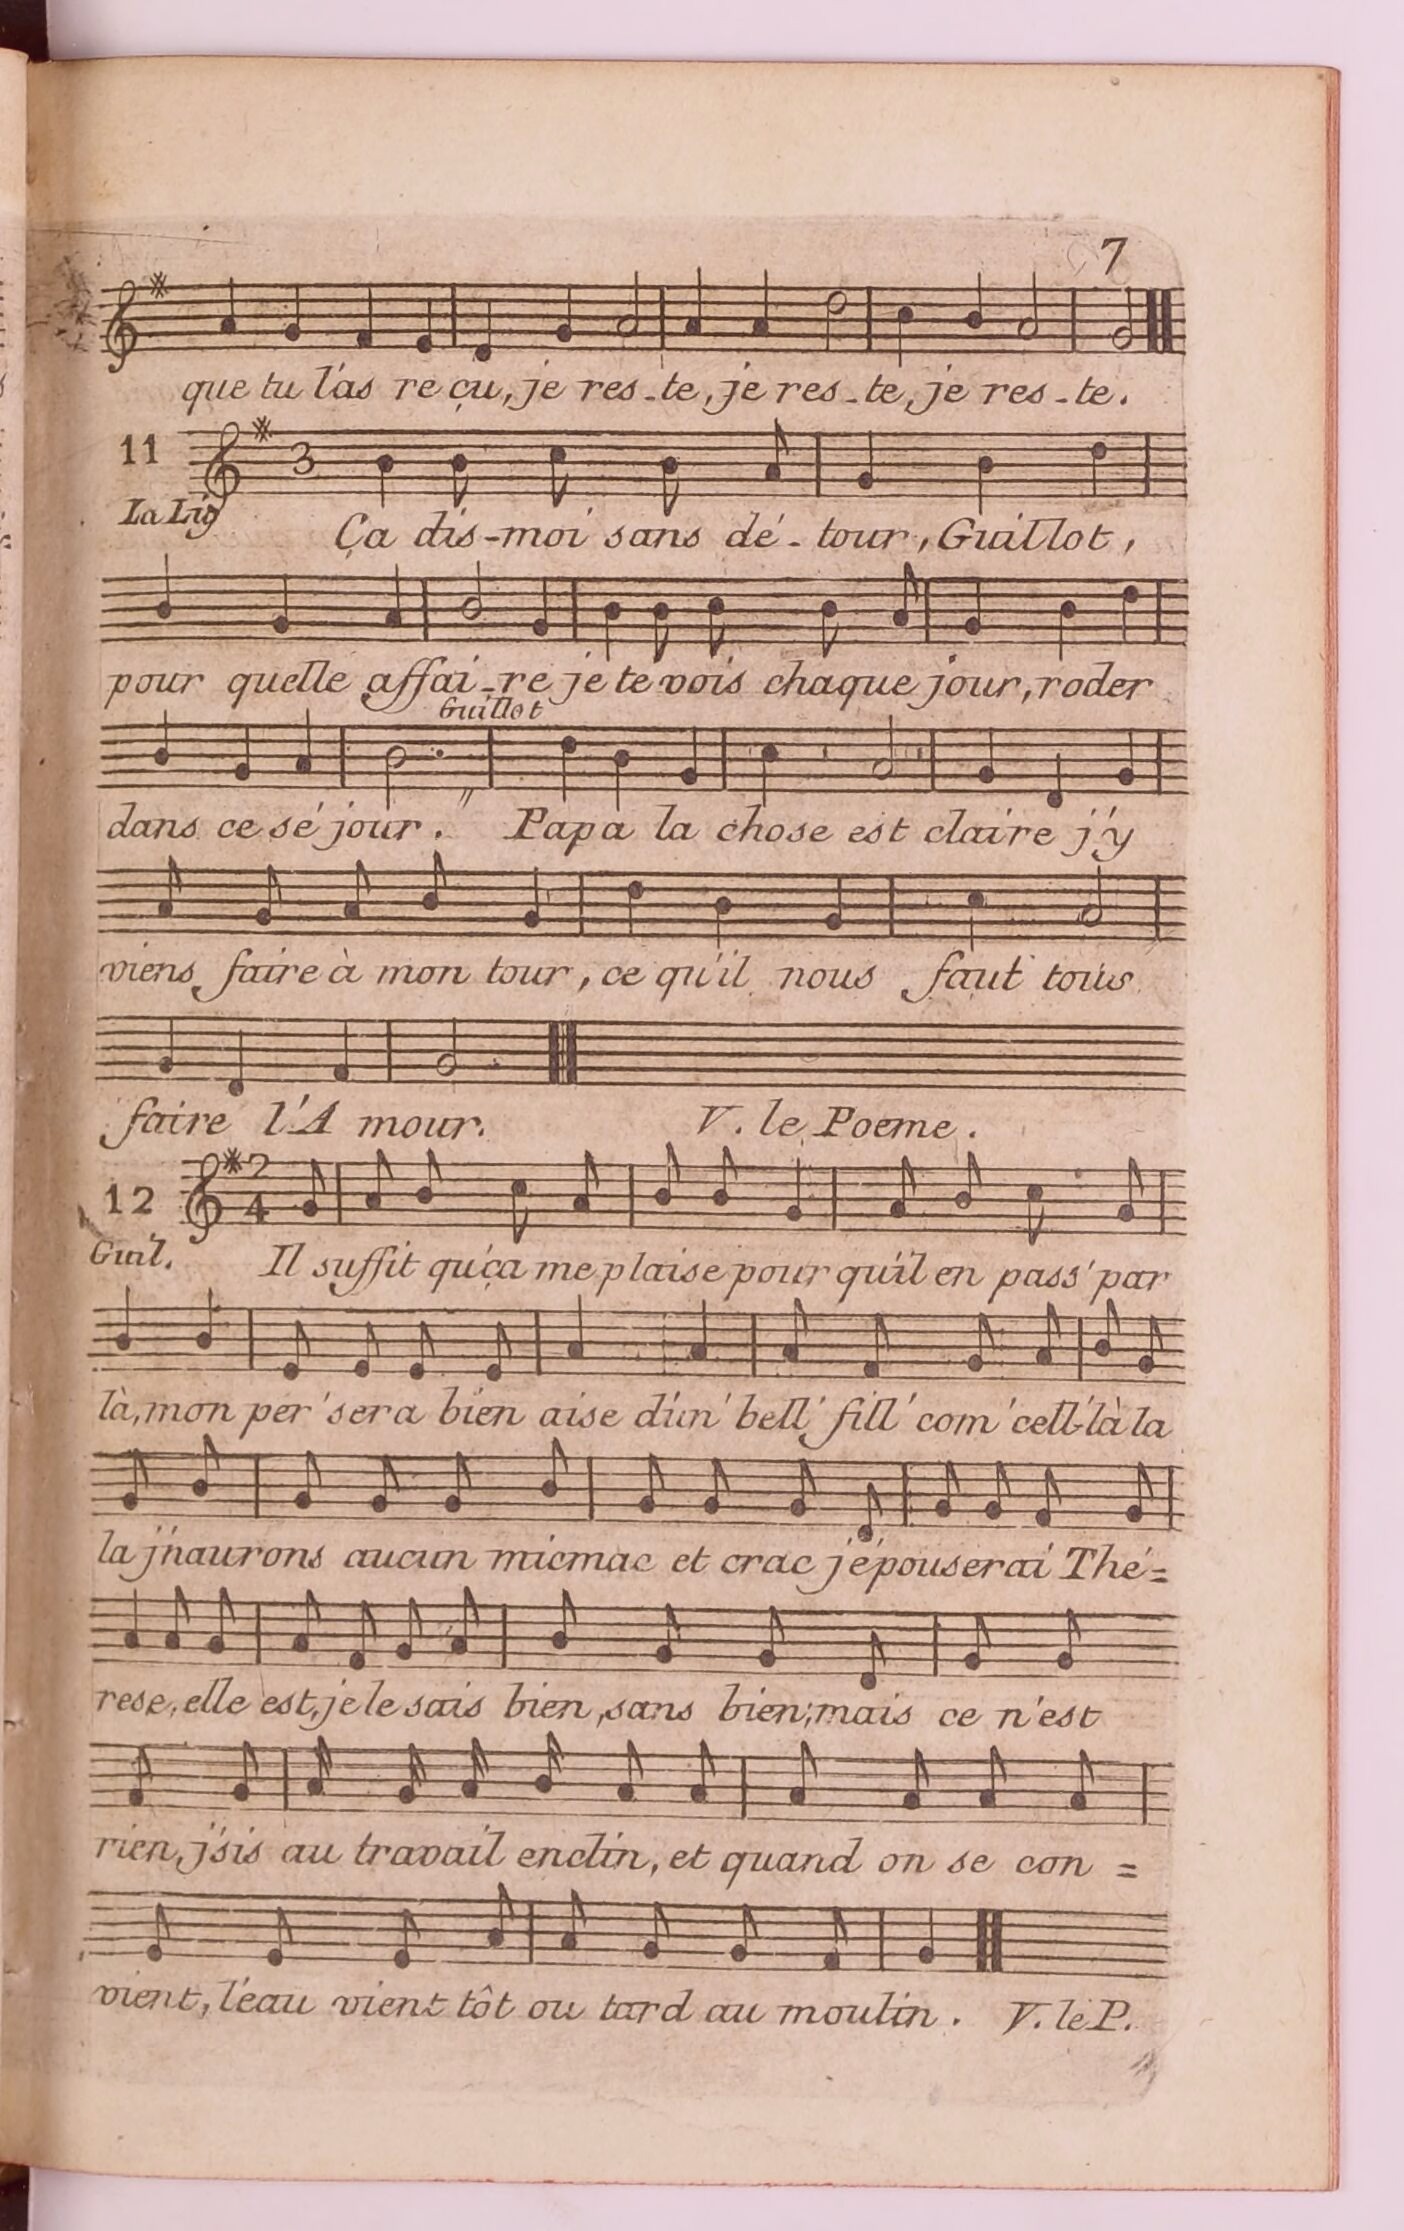 7
que tu l'as re çu, je res-te, je res-te, je res-te.
11
3
La Lig
Ça dis-moi sans dé-tour, Guillot,
pour quelle affai-re je te vois chaque jour, roder
Guillot
dans ce sé jour. Papa la chose est claire j'y
viens faire à mon tour, ce qu'il nous faut tous
faire l'A mour. V. le Poeme.
12
2
4
Guil.
Il suffit qu'ça me plaise pour qu'il en pass' par
là, mon per' sera bien aise d'un' bell' fill' com' cell-là la
la j'naurons aucun micmac et crac j'épouserai Thé=
rese, elle est, je le sais bien, sans bien; mais ce n'est
rien, j'sis au travail enclin, et quand on se con=
vient, l'éau vient tôt ou tard au moulin. V. le P.